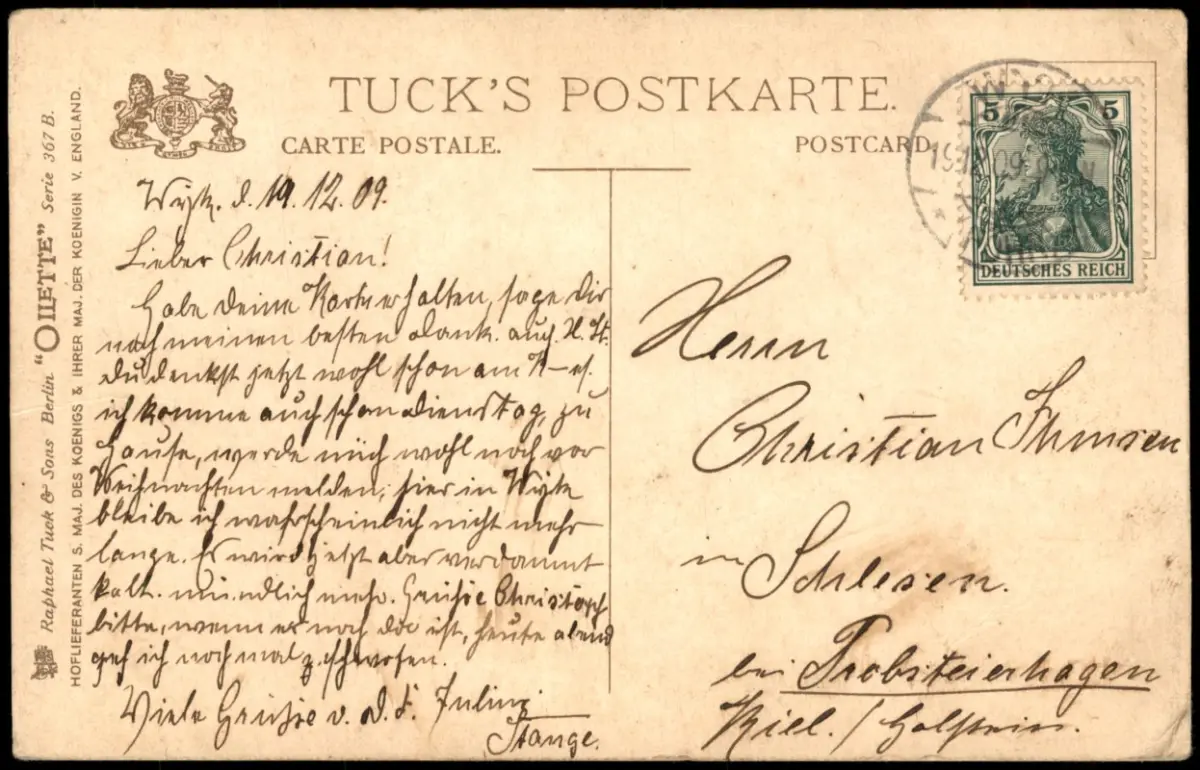 TUCK'S POSTKARTE.
CARTE POSTALE.
POSTCARD.
Raphael Tuck & Sons Berlin "OILETTE" Serie 367 B.
HOFLIEFERANTEN S. MAJ. DES KOENIGS & IHRER MAJ. DER KOENIGIN V. ENGLAND.
5 5
DEUTSCHES REICH
Wyk. d. 19.12.09.
Lieber Christian!
Habe deine Karte erhalten, sage dir
noch meinen besten dank.
du denkst jetzt wohl schon am
ich komme auch schon dienstag, zu
Hause, werde mich wohl noch vor
Weihnachten melden; hier in Wyk
bleibe ich wahrscheinlich nicht mehr
lange. Es wird jetzt aber verdammt
kalt. mündlich mehr. Grüße Christoph
bitte, wenn er noch da ist, heute abend
geh ich noch mal z. schwofen.
Viele Grüße v. d. F. Julius
Stange.
Herrn
Christian
in Schlesen.
bei Probsteierhagen
Kiel./Holstein.